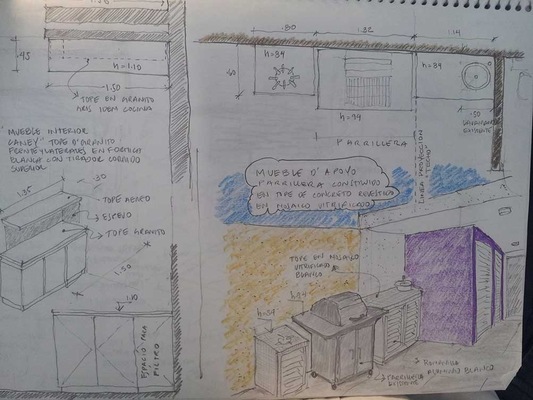 1.50
.45
h=1.10
1.50
TOPE EN GRANITO
GRIS IDEM COCINA
"MUEBLE INTERIOR
CANEY" TOPE D'GRANITO
FRENTE Y LATERALES EN FORMICA
BLANCA CON TIRADOR CORRIDO
SUPERIOR
1.35
.30
TOPE AEREO
ESPEJO
TOPE GRANITO
1.50
1.10
ESPACIO PARA
FILTRO
.80
1.32
1.14
.60
h=84
h=84
h=84
.50
EXISTENTE
PARRILLERA
LINEA PROYECCION
"TECHO"
MUEBLE D'APOYO
PARRILLERA CONSTRUIDO
EN TOPE DE CONCRETO REVESTIDO
EN MOSAICO VITRIFICADO
TOPE EN MOSAICO
VITRIFICADO
BLANCO
h=84
h=84
ROMANILLA
ALUMINIO BLANCO
PARRILLERA
EXISTENTE